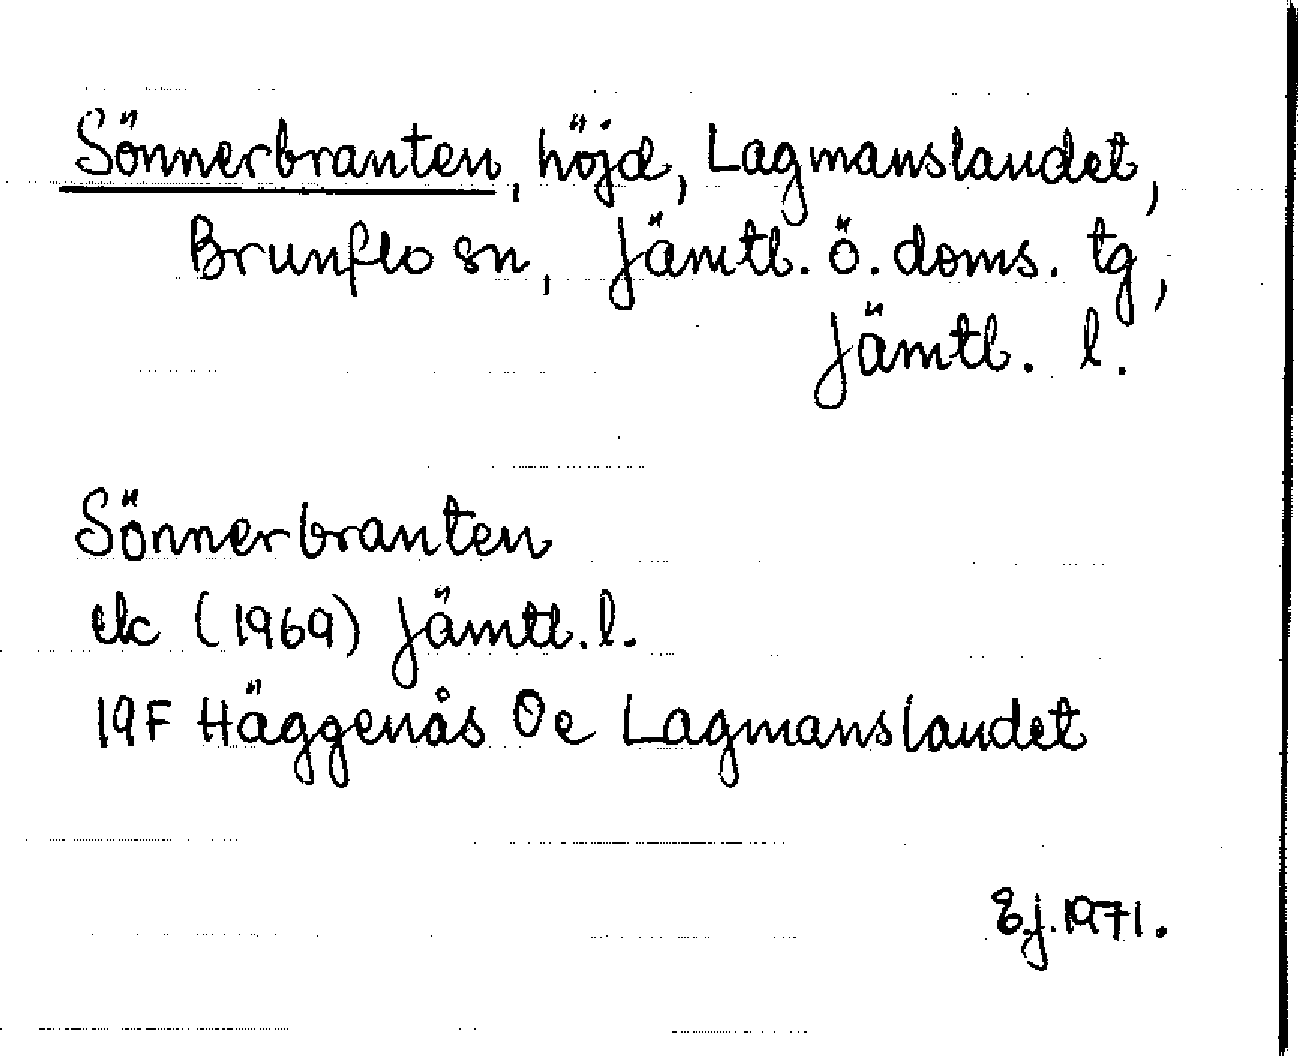 Sönnerbranten, höjd, Lagmanslandet,
Brunflo sn, Jämtl. ö. doms. tg,
Jämtl. l.
Sönnerbranten
ek (1969) Jämtl. l.
19F Häggenås 0e Lagmanslandet
Ej. 1971.